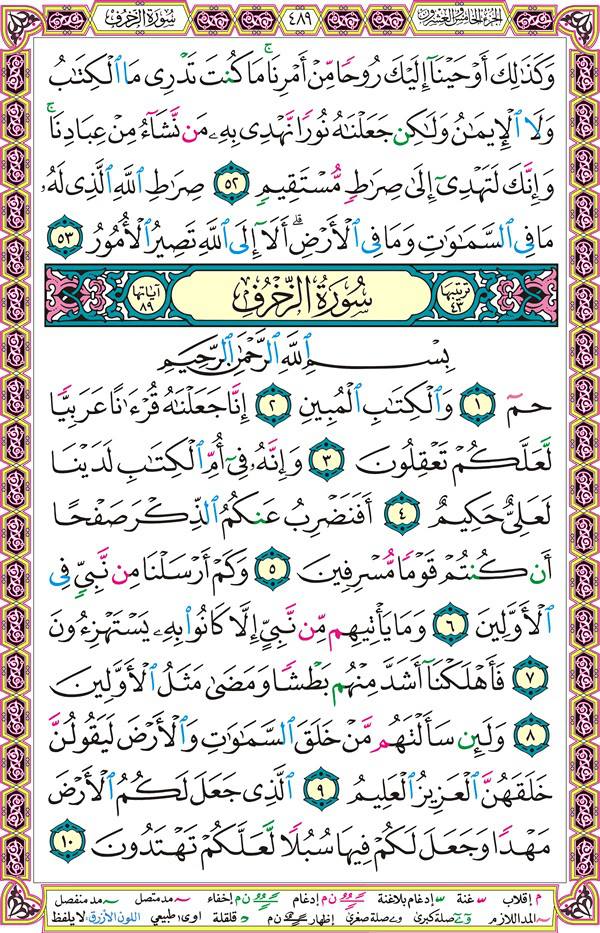 سُورَةُ الزُّخْرُفِ
٤٨٩
الجزء الخامس والعشرون
وَكَذَٰلِكَ أَوْحَيْنَآ إِلَيْكَ رُوحًا مِّنْ أَمْرِنَا ۚ مَا كُنتَ تَدْرِى مَا ٱلْكِتَٰبُ
وَلَا ٱلْإِيمَٰنُ وَلَٰكِن جَعَلْنَٰهُ نُورًا نَّهْدِى بِهِۦ مَن نَّشَآءُ مِنْ عِبَادِنَا ۚ
وَإِنَّكَ لَتَهْدِىٓ إِلَىٰ صِرَٰطٍ مُّسْتَقِيمٍ ٥٢ صِرَٰطِ ٱللَّهِ ٱلَّذِى لَهُۥ
مَا فِى ٱلسَّمَٰوَٰتِ وَمَا فِى ٱلْأَرْضِ ۗ أَلَآ إِلَى ٱللَّهِ تَصِيرُ ٱلْأُمُورُ ٥٣
ترتيبها ٤٣ سُورَةُ الزُّخْرُفِ آياتها ٨٩
بِسْمِ ٱللَّهِ ٱلرَّحْمَٰنِ ٱلرَّحِيمِ
حمٓ ١ وَٱلْكِتَٰبِ ٱلْمُبِينِ ٢ إِنَّا جَعَلْنَٰهُ قُرْءَٰنًا عَرَبِيًّا
لَّعَلَّكُمْ تَعْقِلُونَ ٣ وَإِنَّهُۥ فِىٓ أُمِّ ٱلْكِتَٰبِ لَدَيْنَا
لَعَلِىٌّ حَكِيمٌ ٤ أَفَنَضْرِبُ عَنكُمُ ٱلذِّكْرَ صَفْحًا
أَن كُنتُمْ قَوْمًا مُّسْرِفِينَ ٥ وَكَمْ أَرْسَلْنَا مِن نَّبِىٍّ فِى
ٱلْأَوَّلِينَ ٦ وَمَا يَأْتِيهِم مِّن نَّبِىٍّ إِلَّا كَانُوا۟ بِهِۦ يَسْتَهْزِءُونَ
٧ فَأَهْلَكْنَآ أَشَدَّ مِنْهُم بَطْشًا وَمَضَىٰ مَثَلُ ٱلْأَوَّلِينَ
٨ وَلَئِن سَأَلْتَهُم مَّنْ خَلَقَ ٱلسَّمَٰوَٰتِ وَٱلْأَرْضَ لَيَقُولُنَّ
خَلَقَهُنَّ ٱلْعَزِيزُ ٱلْعَلِيمُ ٩ ٱلَّذِى جَعَلَ لَكُمُ ٱلْأَرْضَ
مَهْدًا وَجَعَلَ لَكُمْ فِيهَا سُبُلًا لَّعَلَّكُمْ تَهْتَدُونَ ١٠
م إقلاب غنة إدغام بلاغنة ن م إدغام ن م إخفاء مد متصل مد منفصل
المد اللازم صلة كبرى صلة صغرى إظهار ن م قلقلة اوى طبيعي اللون الأزرق: لا يلفظ